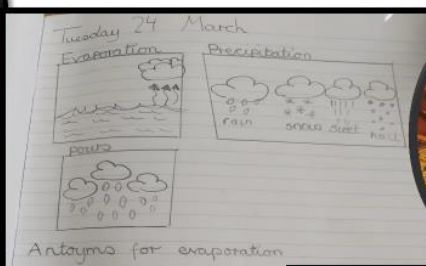 Tuesday 24 March
Evaporation
Precipitation
rain
snow
sleet
hail
pours
Antoyms for evaporation